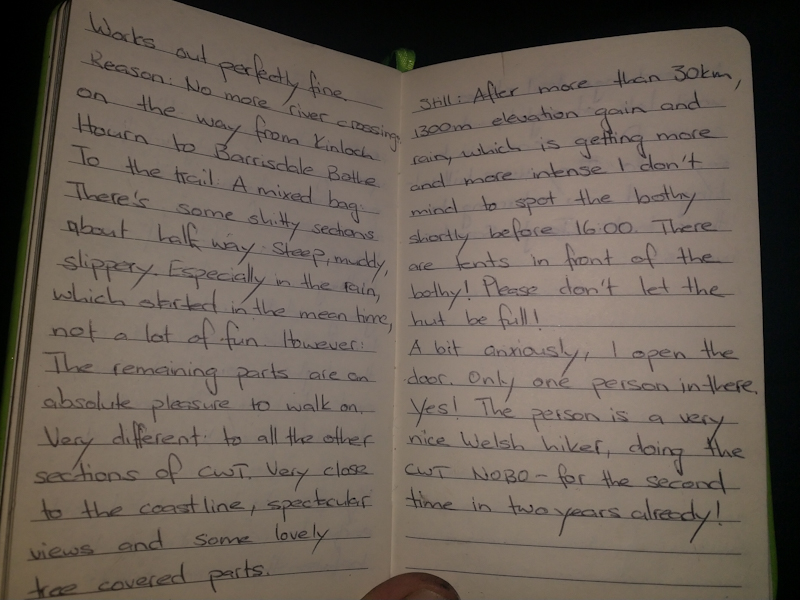 Works out perfectly fine.
Reason: No more river crossings
on the way from Kinloch
Hourn to Barrisdale Bothe
To the trail: A mixed bag:
There's some shitty sections
about half way: Steep, muddy,
slippery. Especially in the rain,
which started in the mean time,
not a lot of fun. However:
The remaining parts are an
absolute pleasure to walk on.
Very different to all the other
sections of CWT. Very close
to the coastline, spectcular
views and some lovely
tree covered parts.
Still: After more than 30km,
1300m elevation gain and
rain, which is getting more
and more intense I don't
mind to spot the bothy
shortly before 16:00. There
are tents in front of the
bothy! Please don't let the
hut be full!
A bit anxiously, I open the
door. Only one person in there.
Yes! The person is a very
nice Welsh hiker, doing the
CWT NOBO - for the second
time in two years already!